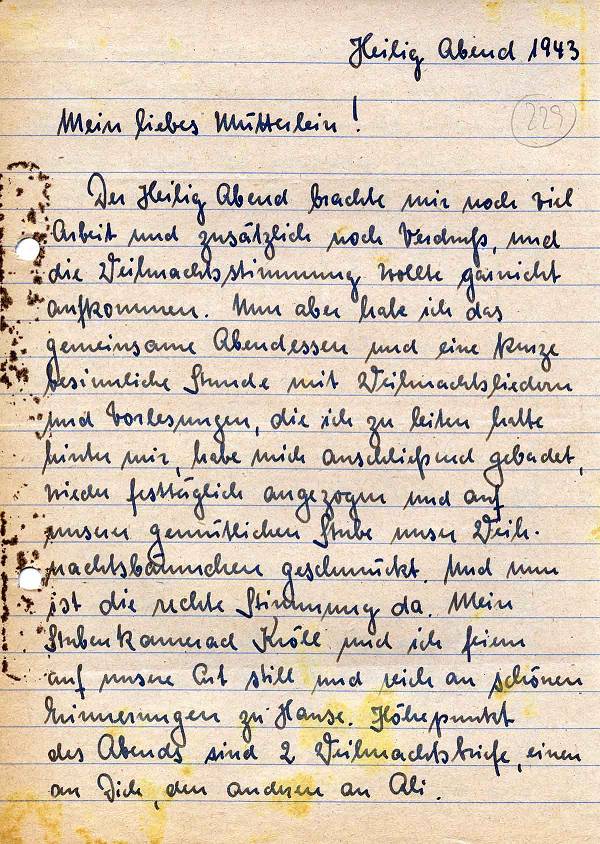 Heilig Abend 1943
229
Mein liebes Mütterlein!
Der Heilig Abend brachte mir noch viel
Arbeit und zusätzlich noch Verdruß, und
die Weihnachtsstimmung wollte garnicht
aufkommen. Nun aber habe ich das
gemeinsame Abendessen und eine kurze
besinnliche Stunde mit Weihnachtsliedern
und Vorlesungen, die ich zu leiten hatte
hinter mir, habe mich anschließend gebadet,
wieder festtäglich angezogen und auf
unserer gemütlichen Stube unser Weih-
nachtsbäumchen geschmückt. Und nun
ist die rechte Stimmung da. Mein
Stubenkamerad Kröll und ich feiern
auf unsere Art still und reich an schönen
Erinnerungen zu Hause. Höhepunkt
des Abends sind 2 Weihnachtsbriefe, einen
an Dich, den anderen an Ali.